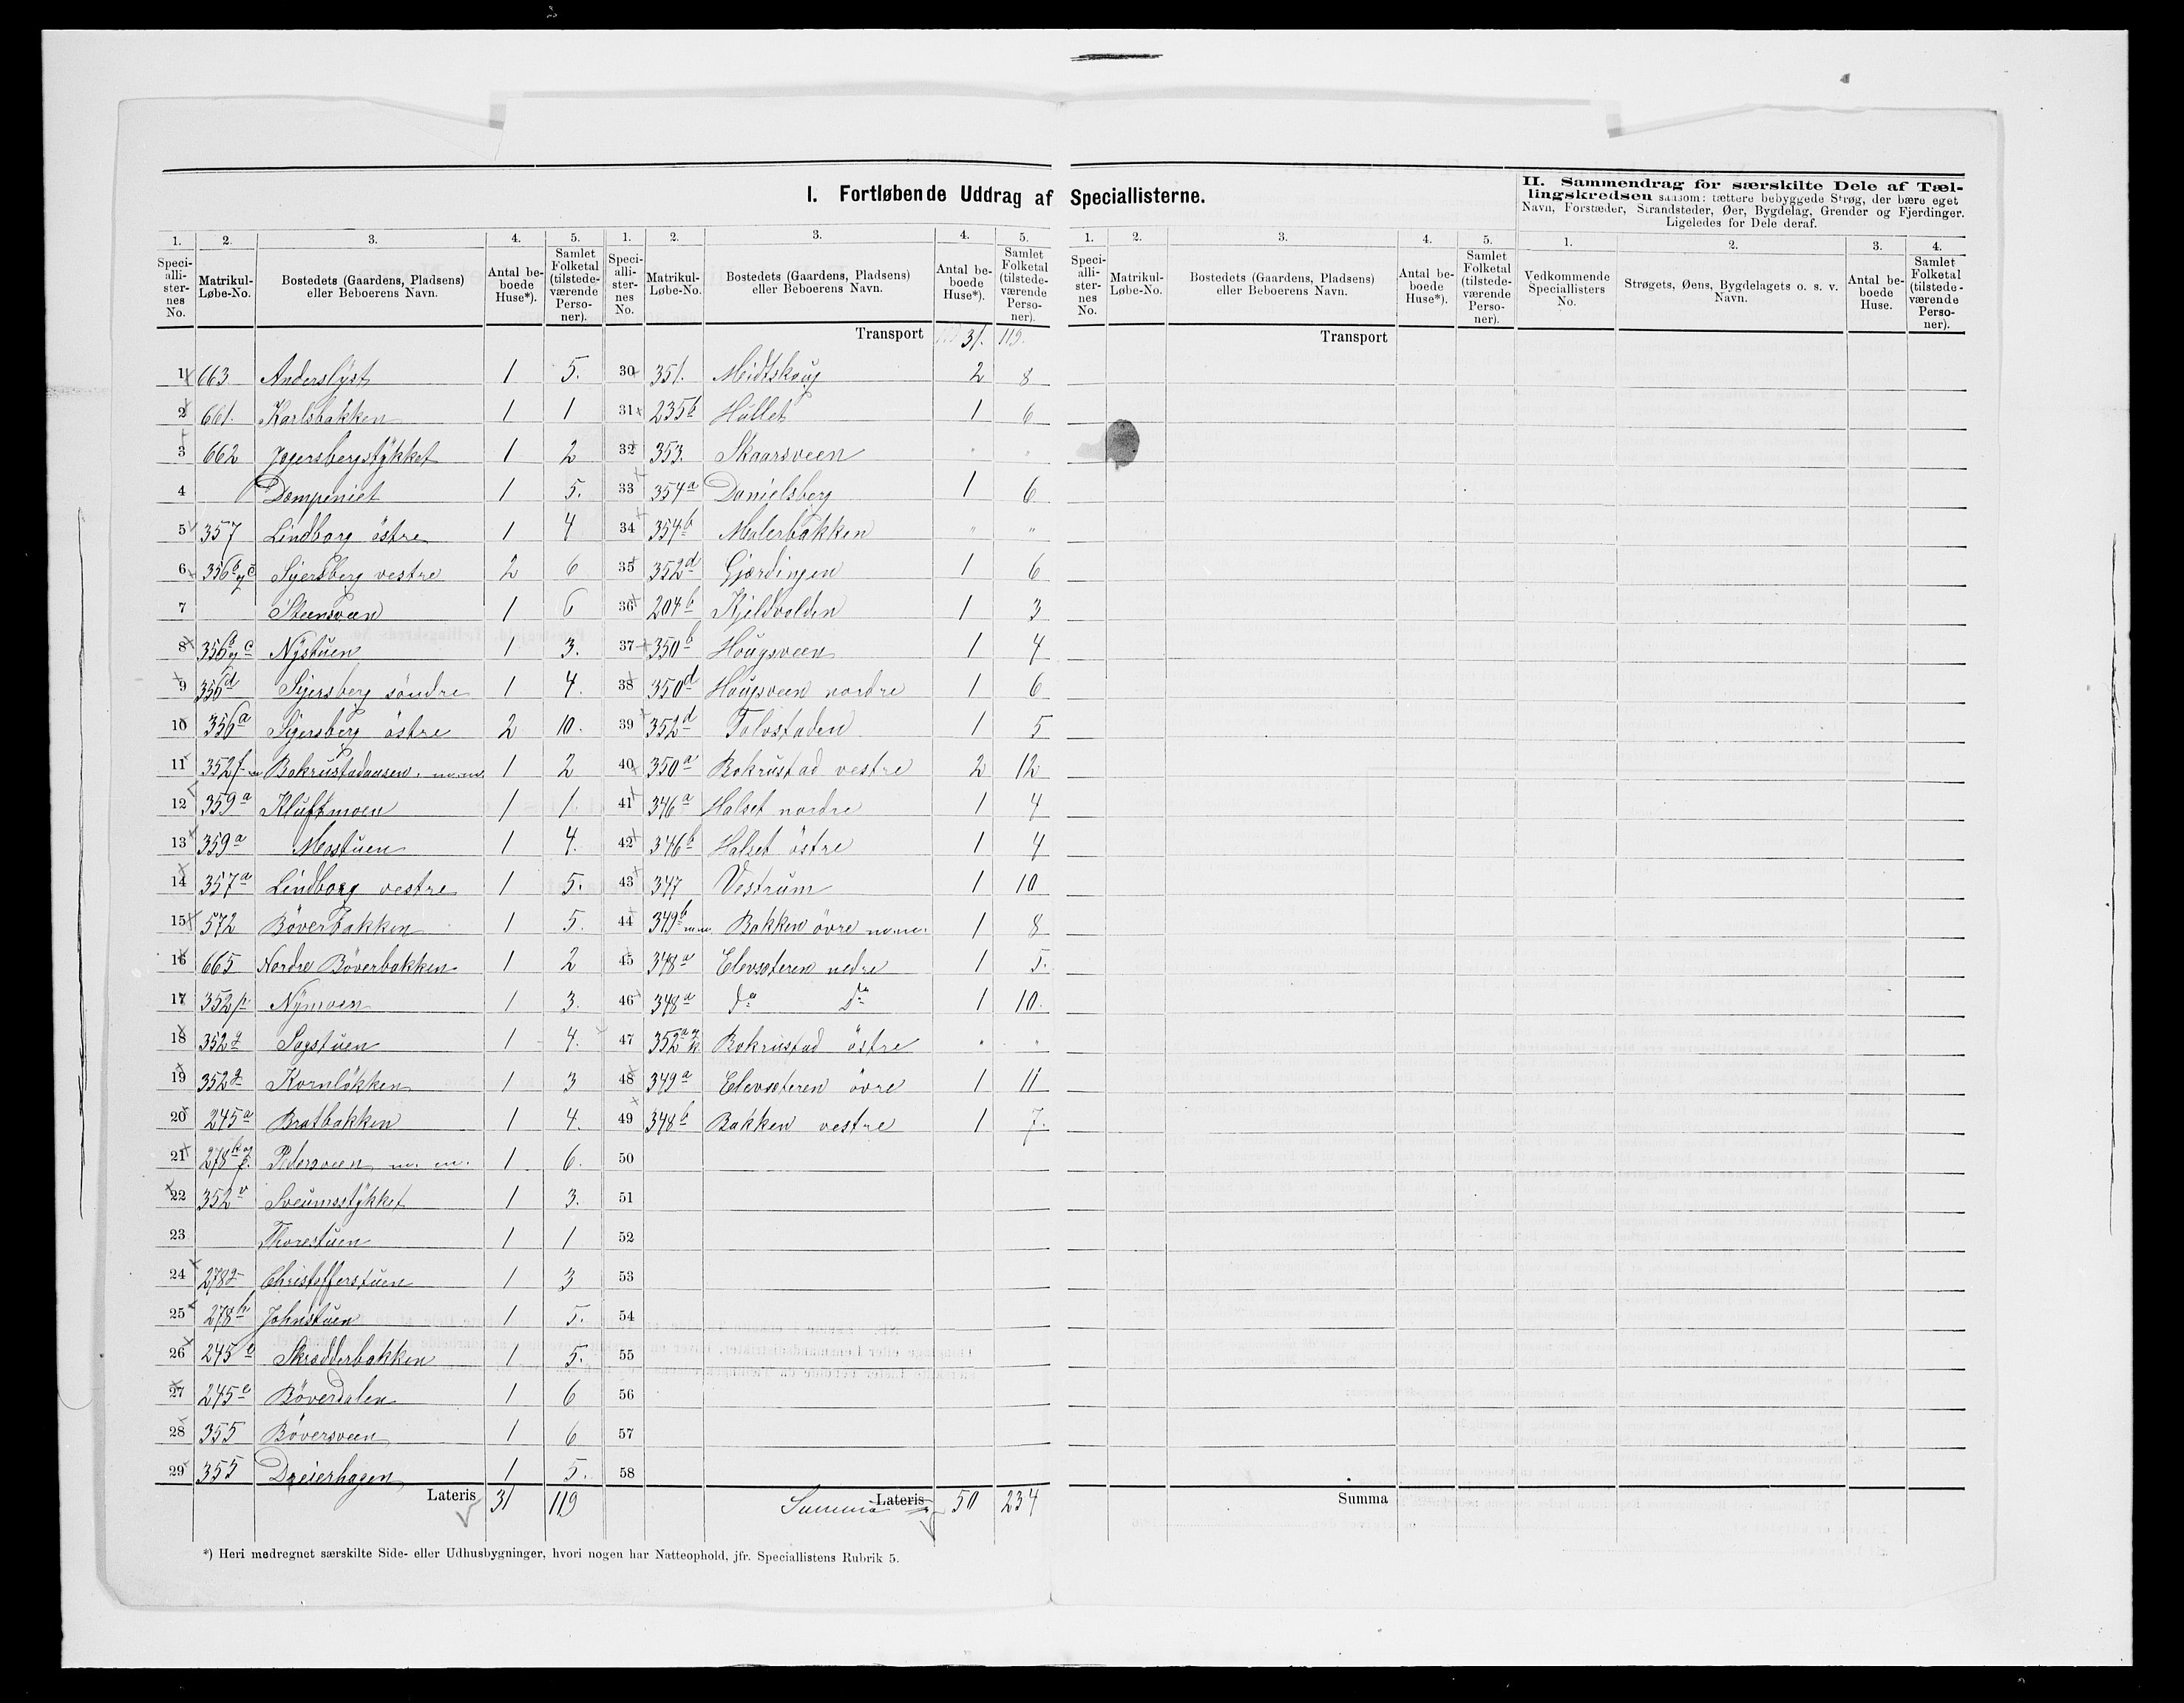 I. Fortløbende Uddrag af Speciallisterne.
II. Sammendrag for særskilte Dele af Tællingskredsen saasom: tættere bebyggede Strøg, der bære eget
Navn, Forstæder, Strandsteder, Øer, Bygdelag, Grender og Fjerdinger.
Ligeledes for Dele deraf.
1. 2. 3. 4. 5. 1. 2. 3. 4. 5. 1. 2. 3. 4. 5. 1. 2. 3. 4.
Speciallisternes No. Matrikul-Løbe-No. Bostedets (Gaardens, Pladsens) eller Beboerens Navn. Antal beboede Huse*). Samlet Folketal (tilstedeværende Personer).
Speciallisternes No. Matrikul-Løbe-No. Bostedets (Gaardens, Pladsens) eller Beboerens Navn. Antal beboede Huse*). Samlet Folketal (tilstedeværende Personer).
Speciallisternes No. Matrikul-Løbe-No. Bostedets (Gaardens, Pladsens) eller Beboerens Navn. Antal beboede Huse*). Samlet Folketal (tilstedeværende Personer).
Vedkommende Speciallisters No. Strøgets, Øens, Bygdelagets o. s. v. Navn. Antal beboede Huse. Samlet Folketal (tilstedeværende Personer).
1 663 Anderslyst 1 5.
2 661. Karlsbakken 1 1
3 662 Jegersbergstykket 1 2
4 Dompeniet 1 5.
5 357 Lindborg östre 1 4
6 356 b og c Sijersberg vestre 2 6
7 Steensveen 1 6
8 356 b og c Nystuen 1 3.
9 356 d Sijersberg söndre 1 4.
10 356 a Sijersberg östre 2 10.
11 352 f Bakrustadaasen m.m. 1 2
12 359 a Kluftmoen 1 1.
13 359 a Mostuen 1 4.
14 357 a Lindborg vestre 1 5.
15 572 Böverbakken 1 5.
16 665 Nordre Böverbakken 1 2
17 352 p Nymoen 1 3.
18 352 g Sagstuen 1 4.
19 352 g Kornlökken 1 3
20 245 a Bratbakken 1 4.
21 278 Pedersveen m. m. 1 6.
22 352 v Sveumsstykket 1 3.
23 Thorestuen 1 1
24 278 g Christofferstuen 1 3
25 278 h Johnstuen 1 5.
26 245 Skredderbakken 1 5.
27 245 e Böverdalen 1 6
28 355 Böversveen 1 6
29 355 Dreierhagen 1 5.
Lateris 31 119
Transport 31. 119.
30 351. Meidtskoug 2 8
31 235 b Hullet 1 6
32 353. Skaarsveen " "
33 354 a Danielsberg 1 6
34 354 b Malerbakken " "
35 352 d Gjærdingen 1 6
36 204 b Kjeldvolden 1 3
37 350 b Hougsveen 1 4
38 350 d Hougsveen nordre 1 6
39 352 d Tolvstaden 1 5
40 350 a Bakrustad vestre 2 12
41 346 a Halset nordre 1 4
42 346 b Halset östre 1 4
43 347 Vestrum 1 10
44 349 b m.m. Bakken övre m.m. 1 8
45 348 a Elevsæteren nedre 1 5.
46 348 a do do 1 10.
47 352 a Bakrustad östre " "
48 349 a Elevsæteren övre 1 11
49 348 b Bakken vestre 1 7.
50
51
52
53
54
55
56
57
58
Summa Lateris 50 234
Transport
Summa
*) Heri medregnet særskilte Side- eller Udhusbygninger, hvori nogen har Natteophold, jfr. Speciallistens Rubrik 5.